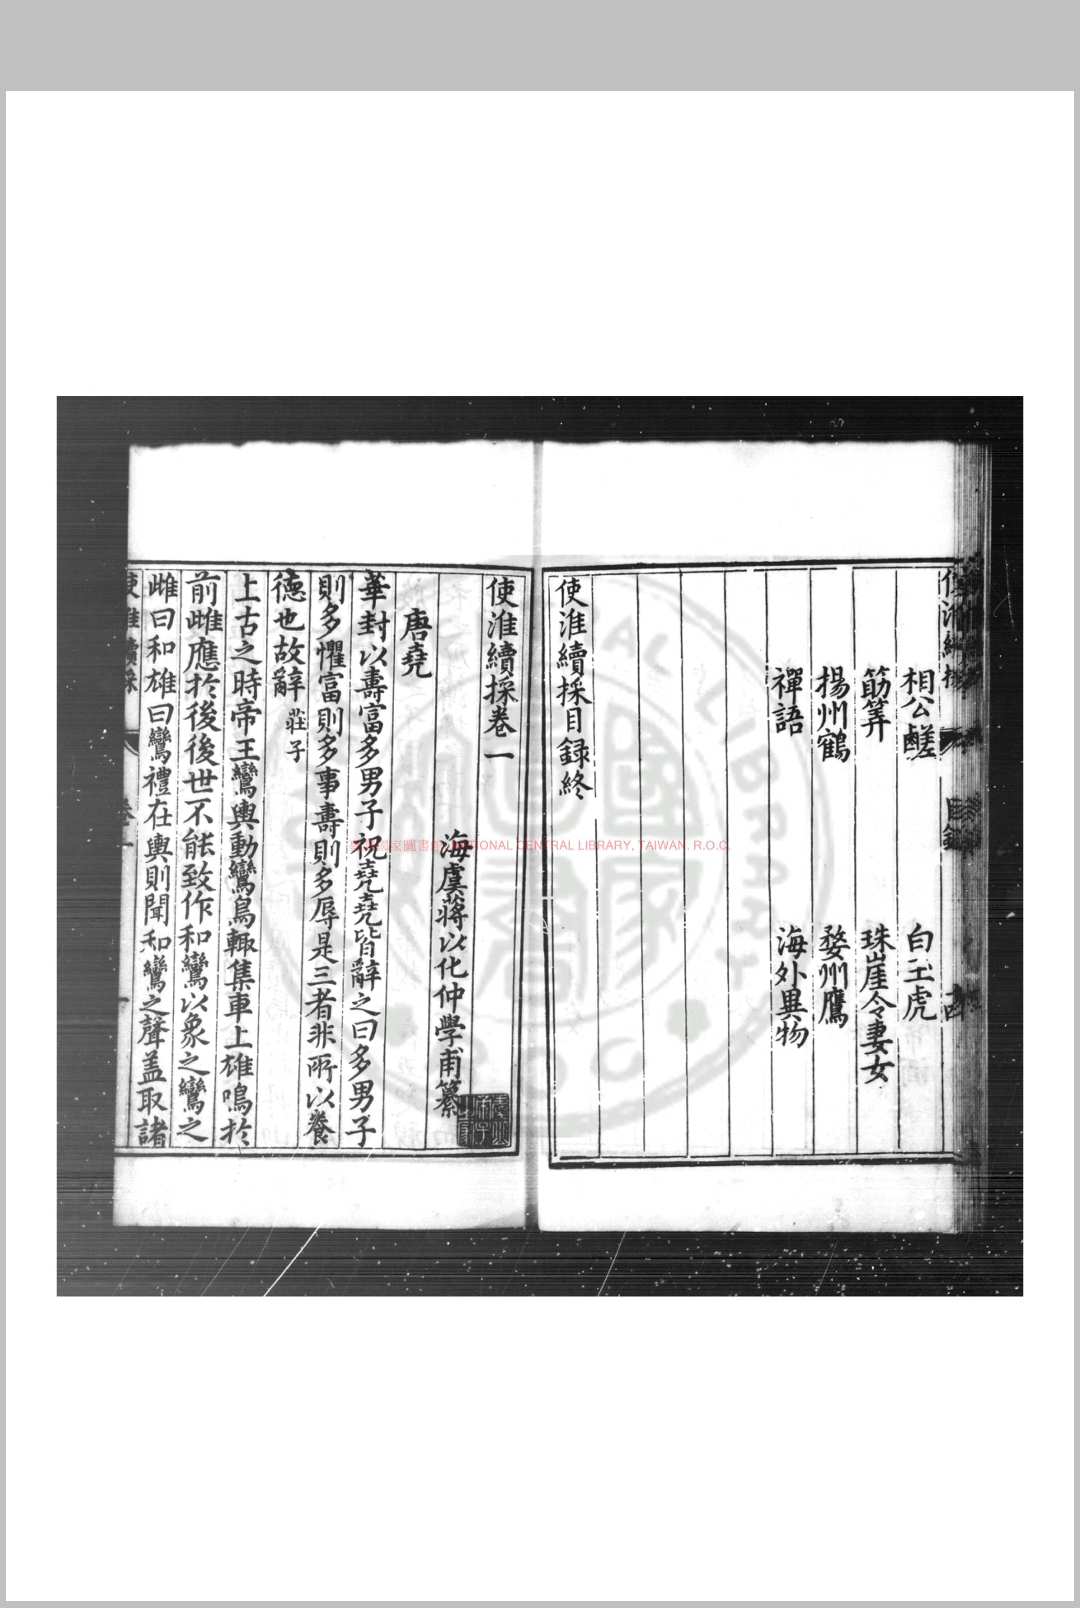 相公鹺
白玉虎
筋筭
珠崖令妻女
揚州鶴
婺州鷹
禪語
海外異物
使淮續採目錄終
使淮續採卷一
海虞蔣以化仲學甫纂
唐堯
華封以壽富多男子祝堯堯皆辭之曰多男子
則多懼富則多事壽則多辱是三者非所以養
德也故辭 莊子
上古之時帝王鸞輿動鸞鳥輒集車上雄鳴於
前雌應於後後世不能致作和鸞以象之鸞之
雌曰和雄曰鸞禮在輿則聞和鸞之聲盖取諸
國家圖書館 NATIONAL CENTRAL LIBRARY, TAIWAN, R.O.C.